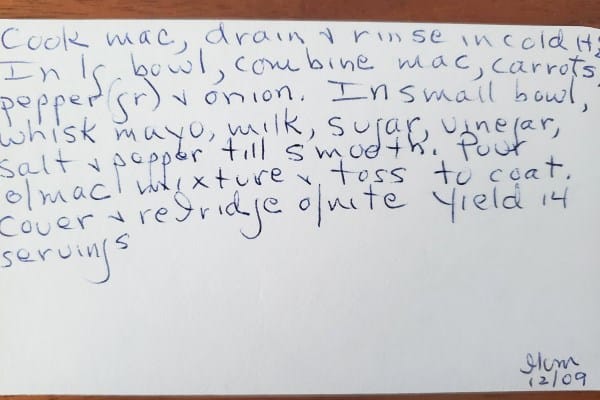 Cook mac, drain & rinse in cold H2
In lg bowl, combine mac, carrots,
pepper (gr) & onion. In small bowl,
whisk mayo, milk, sugar, vinegar,
salt & pepper till smooth. Pour
o/mac mixture & toss to coat.
Cover & refridge o/nite Yield 14
servings
12/09